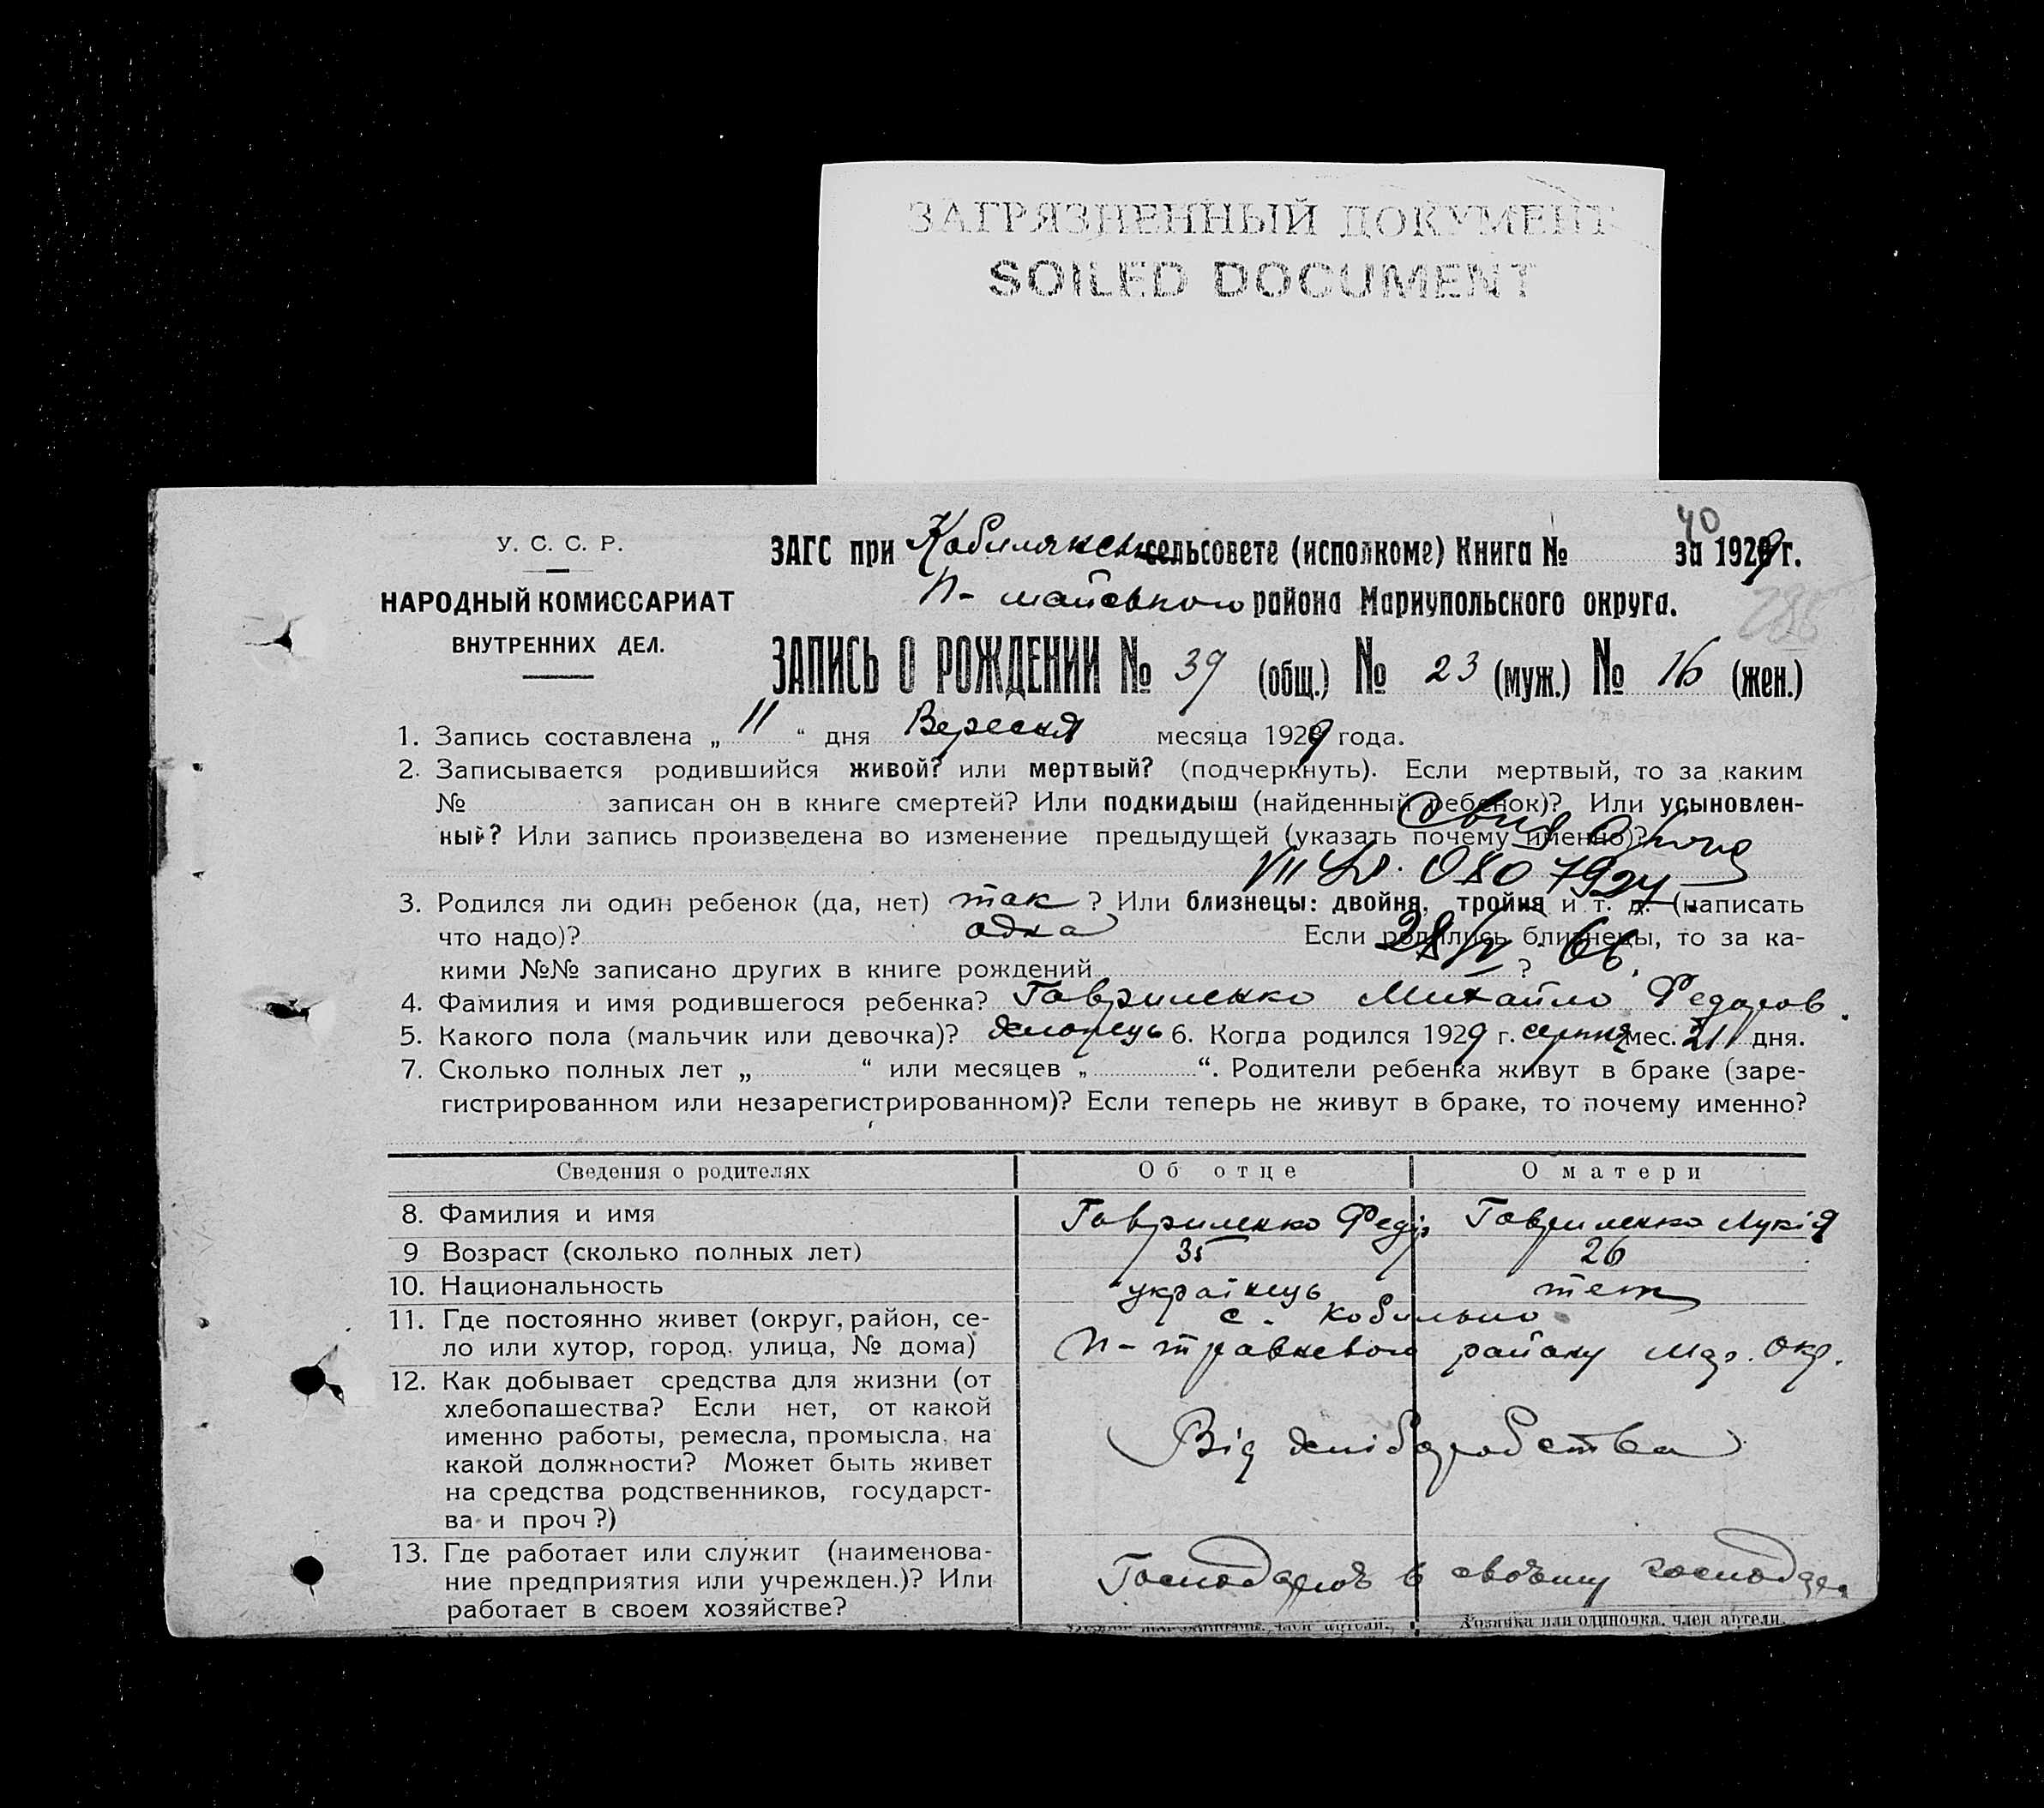 ЗАГРЯЗНЕННЫЙ ДОКУМЕНТ
SOILED DOCUMENT
40
У. С. С. Р.
НАРОДНЫЙ КОМИССАРИАТ
ВНУТРЕННИХ ДЕЛ.
ЗАГС при Кобиляксь сельсовете (исполкоме) Книга № за 1929 г.
П-майського района Мариупольского округа.
286
ЗАПИСЬ О РОЖДЕНИИ № 39 (общ.) № 23 (муж.) № 16 (жен.)
1. Запись составлена „ 11 “ дня Вересня месяца 1929 года.
2. Записывается родившийся живой? или мертвый? (подчеркнуть). Если мертвый, то за каким
№ записан он в книге смертей? Или подкидыш (найденный ребенок)? Или усыновлен-
ный? Или запись произведена во изменение предыдущей (указать почему именно)?
3. Родился ли один ребенок (да, нет) так ? Или близнецы: двойня, тройня и т. д. (написать
что надо)? одна Если родились близнецы, то за ка-
кими №№ записано других в книге рождений ?
4. Фамилия и имя родившегося ребенка? Гавриленко Михайло Федоров.
5. Какого пола (мальчик или девочка)? хлопець 6. Когда родился 1929 г. серпня мес. 21 дня.
7. Сколько полных лет „ “ или месяцев „ “. Родители ребенка живут в браке (заре-
гистрированном или незарегистрированном)? Если теперь не живут в браке, то почему именно?
Сведения о родителях Об отце О матери
8. Фамилия и имя Гавриленко Федір Гавриленко Лукія
9 Возраст (сколько полных лет) 35 26
10. Национальность українець теж
11. Где постоянно живет (округ, район, се-
ло или хутор, город, улица, № дома)
с. Кобильно
П-травневого району Мар. Окр.
12. Как добывает средства для жизни (от
хлебопашества? Если нет, от какой
именно работы, ремесла, промысла, на
какой должности? Может быть живет
на средства родственников, государст-
ва и проч?)
Від хліборобства
13. Где работает или служит (наименова-
ние предприятия или учрежден.)? Или
работает в своем хозяйстве?
в своёму
Хозяйка или одиночка, член артели.